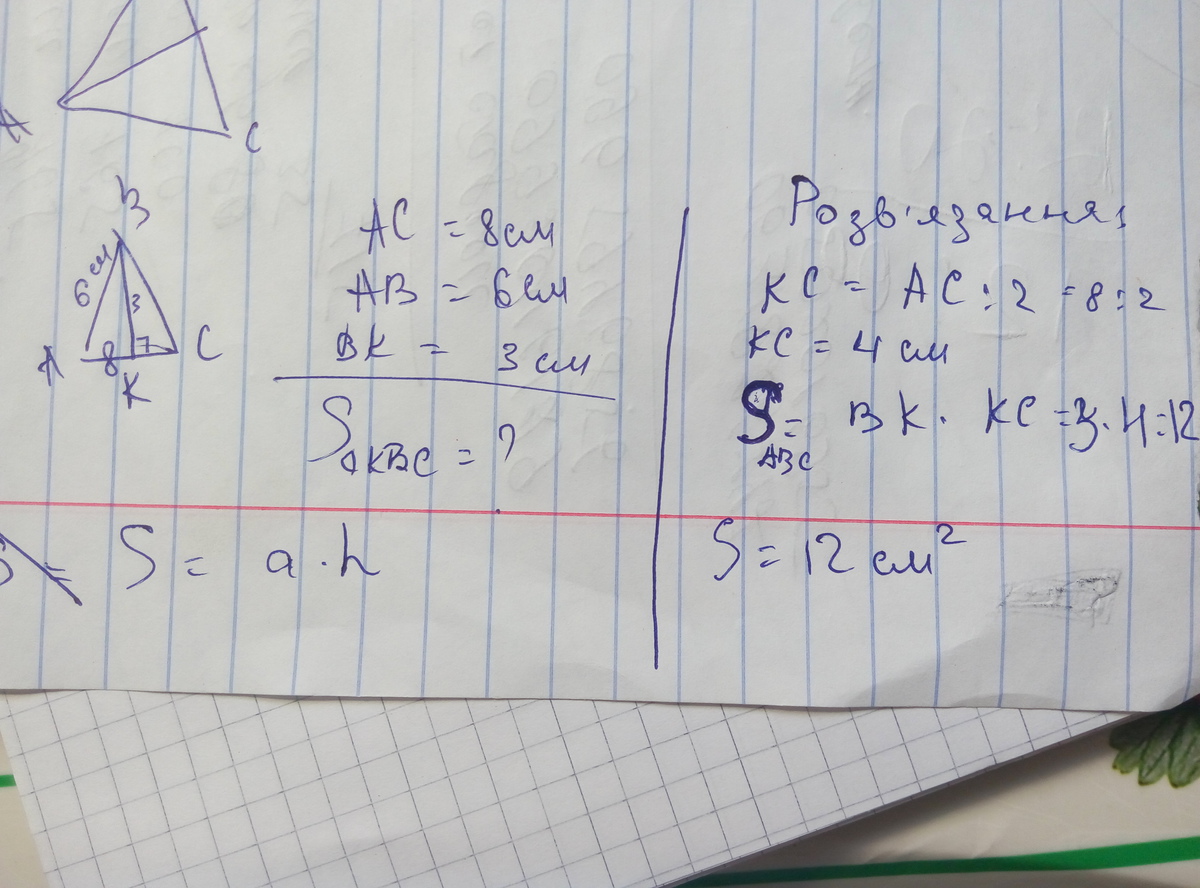 A
C
B
6 см
3
8
A
K
C
AC = 8см
AB = 6см
BK = 3 см
S KBC = ?
S = a · h
Розв'язання:
KC = AC : 2 = 8 : 2
KC = 4 см
S ABC = BK · KC = 3 · 4 = 12
S = 12 см²